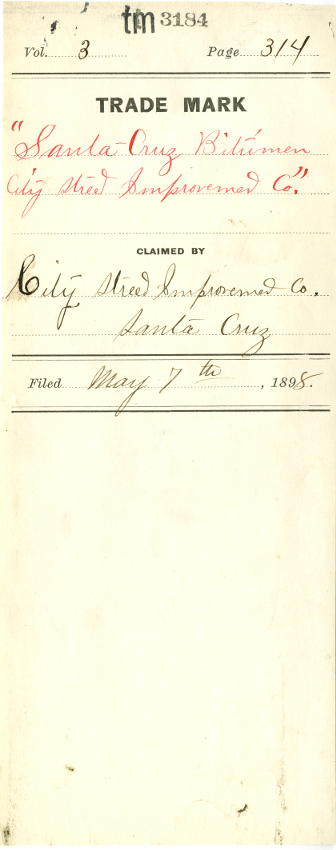 tm 3184
Vol. 3 Page 314
TRADE MARK
"Santa-Cruz Bitumen
City Street Improvement Co."
CLAIMED BY
City Street Improvement Co.
Santa Cruz
Filed May 7th, 1898.